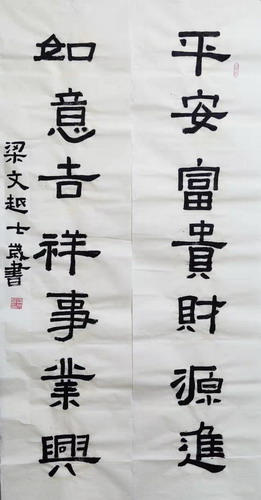 平安富貴財源進
如意吉祥事業興
梁文越士歲書